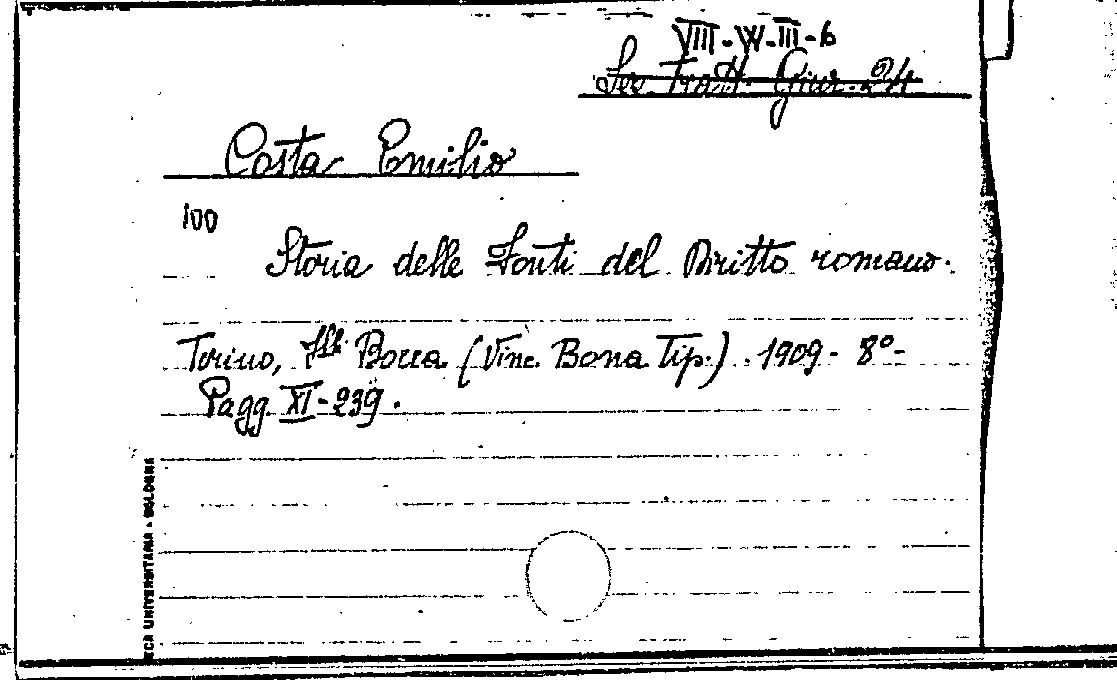 VIII-W-III-6
Sez Tratt. Giur. 24
Costa Emilio
100
Storia delle Fonti del Diritto romano.
Torino, Flli Bocca (Vinc. Bona Tip.) . 1909 - 8º -
Pagg. XI-239.
ECA UNIVERSITARIA - BOLOGNA